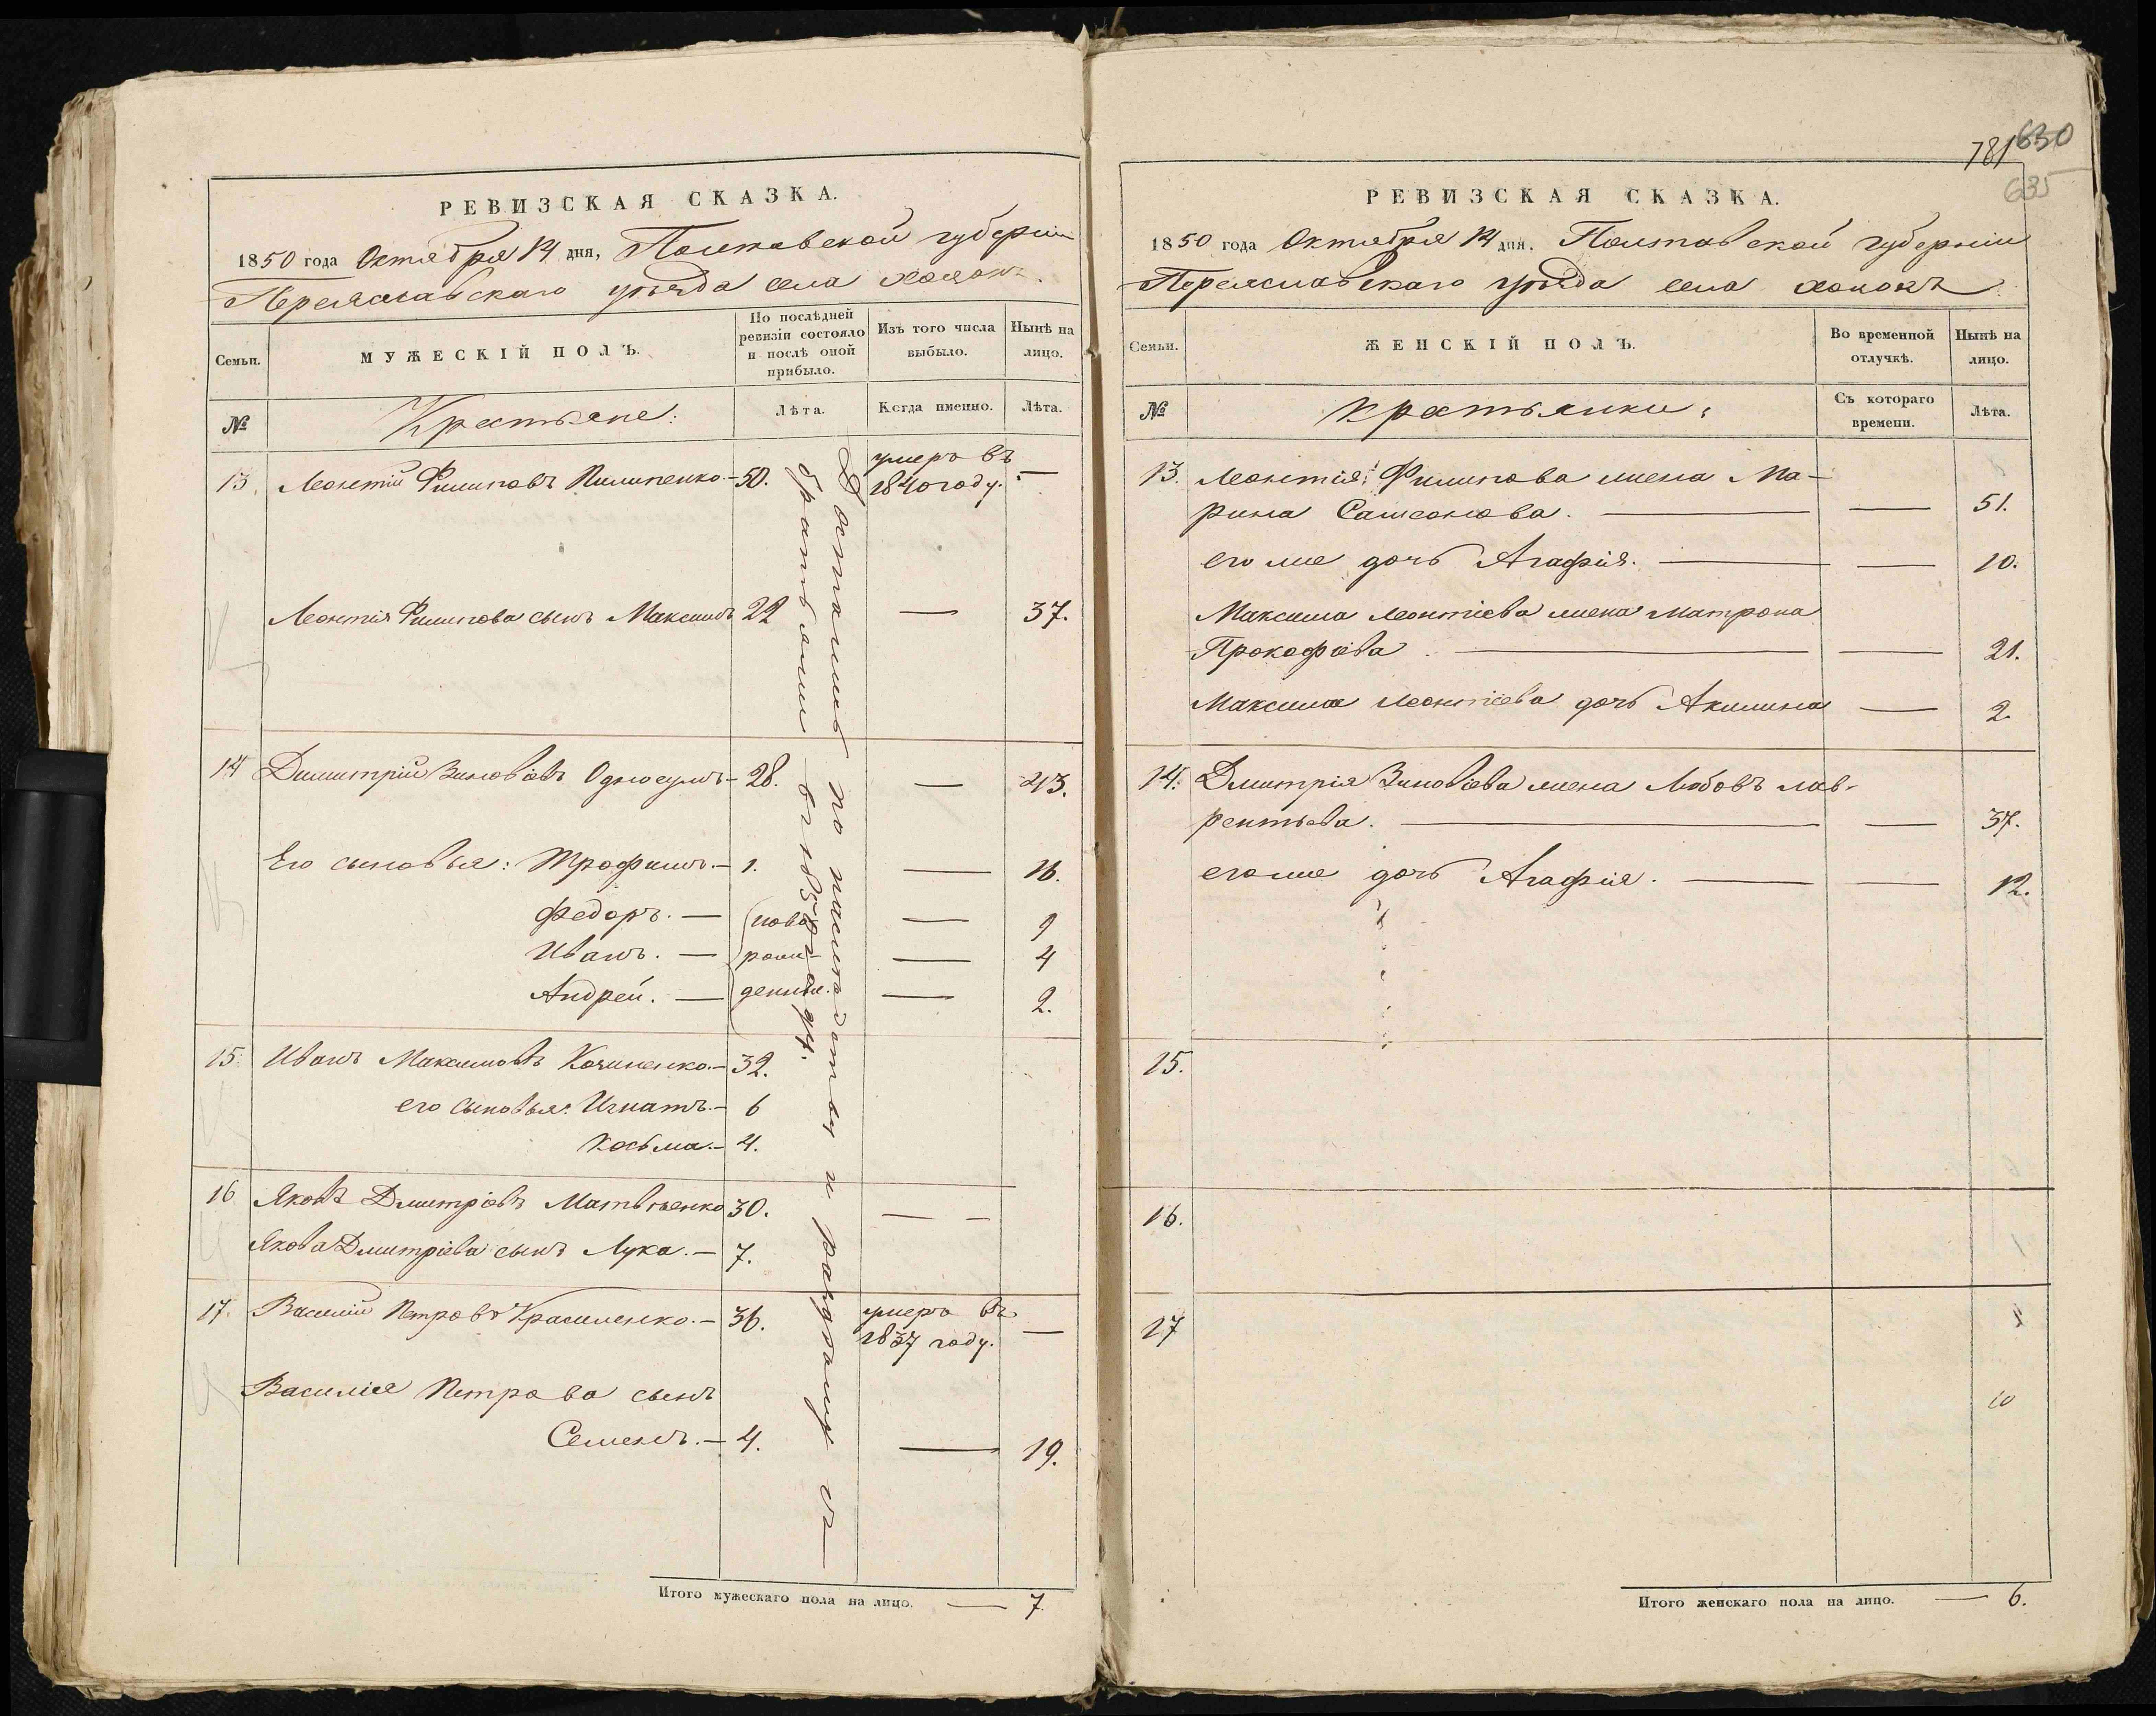 РЕВИЗСКАЯ СКАЗКА.
1850 года Октября 14 дня, Полтавской губерніи
Переяславскаго уѣзда села Хоцокъ.
Семьи.
МУЖЕСКІЙ ПОЛЪ.
По послѣдней
ревизіи состояло
и послѣ оной
прибыло.
Изъ того числа
выбыло.
Нынѣ на
лицо.
№
Крестьяне:
Лѣта.
Когда именно.
Лѣта.
13. Леонтій Филиповъ Пилипенко. — 50. умеръ въ
1840 году. —
Леонтія Филипова сынъ Максимъ 22 — 37.
14 Димитрій Зиновіевъ Односумъ — 28. — 43.
Его сыновья: Трофимъ. — 1. — 16.
Федоръ. — ново — 9
Иванъ. — рож- — 4
Андрей. — денные. — 2.
15. Иванъ Максимовъ Кочиненко. — 32.
его сыновья: Игнатъ. — 6
Косьма. — 4.
16 Яковъ Дмитріевъ Матвѣенко 30. — —
Якова Дмитріева сынъ Лука. — 7.
17. Василій Петровъ Красиленко. — 36. умеръ въ
1837 году. —
Василія Петрова сынъ
Семенъ. — 4. — 19.
Достались по
и раздѣлу съ
братьями въ
году.
Итого мужескаго пола на лицо. — 7.
781 630
635
РЕВИЗСКАЯ СКАЗКА.
1850 года Октября 14 дня. Полтавской губерніи
Переяславскаго уѣзда села Хоцокъ
Семьи.
ЖЕНСКІЙ ПОЛЪ.
Во временной
отлучкѣ.
Нынѣ на
лицо.
№
Крестьянки:
Съ котораго
времени.
Лѣта.
13. Леонтія Филипова жена Ма-
рина Самсонова. — — 51.
его же дочь Агафія. — — 10.
Максима Леонтіева жена Матрона
Прокофіева. — — 21.
Максима Леонтіева дочь Акилина — 2.
14. Дмитрія Зиновіева жена Любовъ Лав-
рентьева. — — 37.
его же дочь Агафія. — — 12.
15.
16.
17
10
Итого женскаго пола на лицо. — 6.